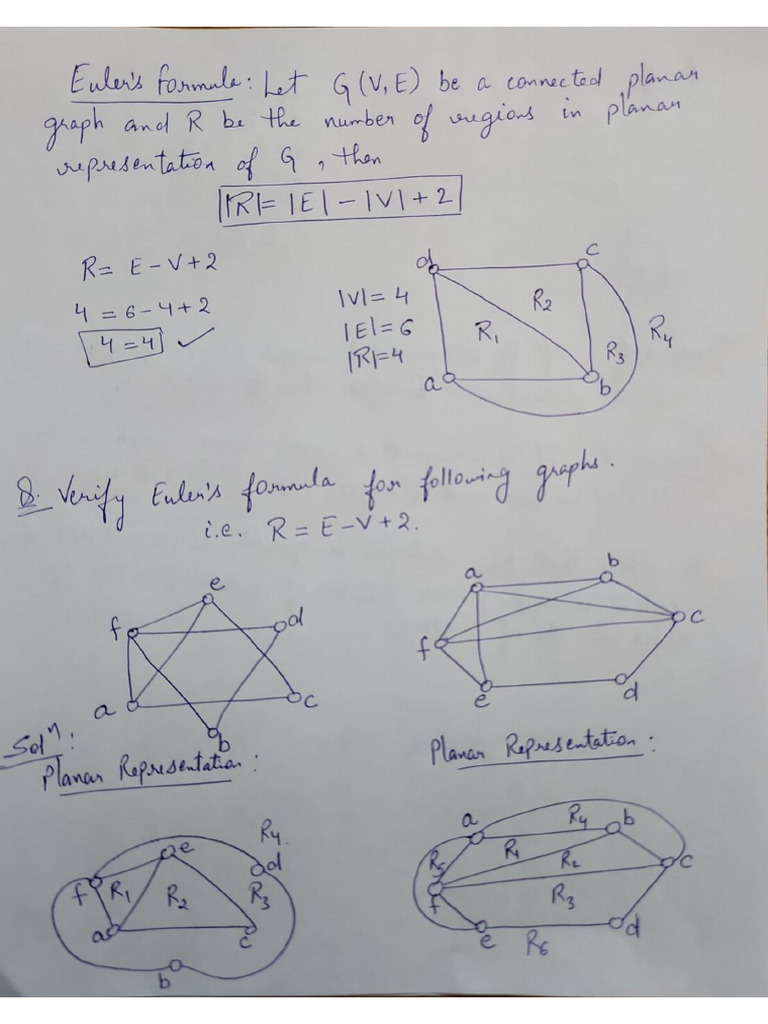 Euler's formula: Let G(V,E) be a connected planar
graph and R be the number of regions in planar
representation of G, then
|R| = |E| - |V| + 2
R = E - V + 2
4 = 6 - 4 + 2
4 = 4 ✓
|V| = 4
|E| = 6
|R| = 4
d
c
R2
R1
R3
R4
a
b
Q. Verify Euler's formula for following graphs.
i.e. R = E - V + 2.
e
f
d
a
c
b
a
b
c
f
e
d
Solⁿ:
Planar Representation:
Planar Representation:
R4
e
d
f
R1
R2
R3
a
c
b
a
R4
b
R5
R1
R2
c
f
R3
e
d
R6